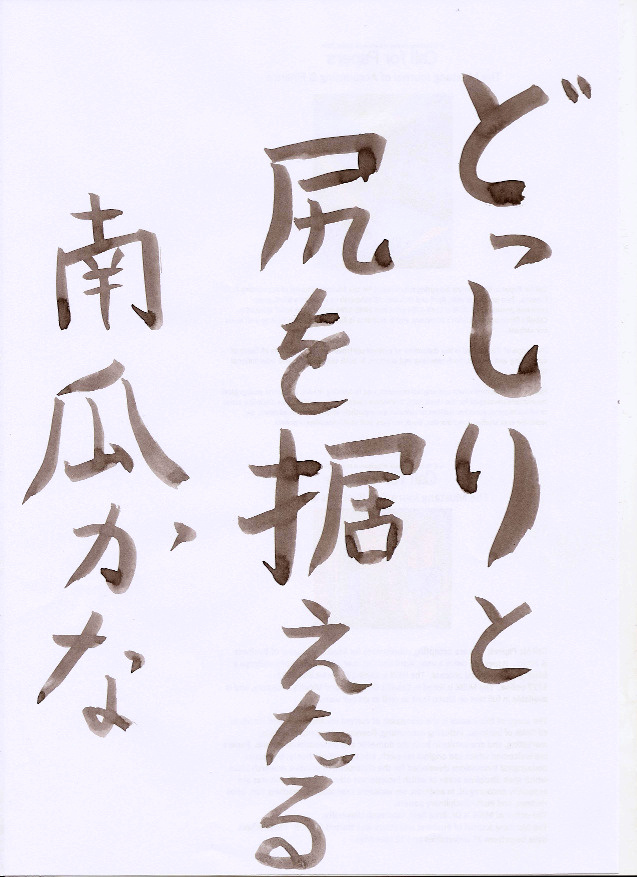 どっしりと
尻を据えたる
南瓜かな